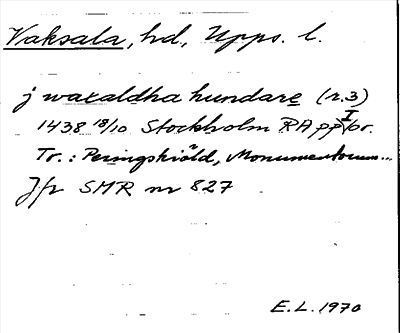 Vaksala, hd, Upps. l.
j waxaldha hundare (r.3)
1438 18/10 Stockholm RA pp I br.
Tr.: Peringskiöld, Monumentorum...
Jfr SMR nr 827
E.L. 1970